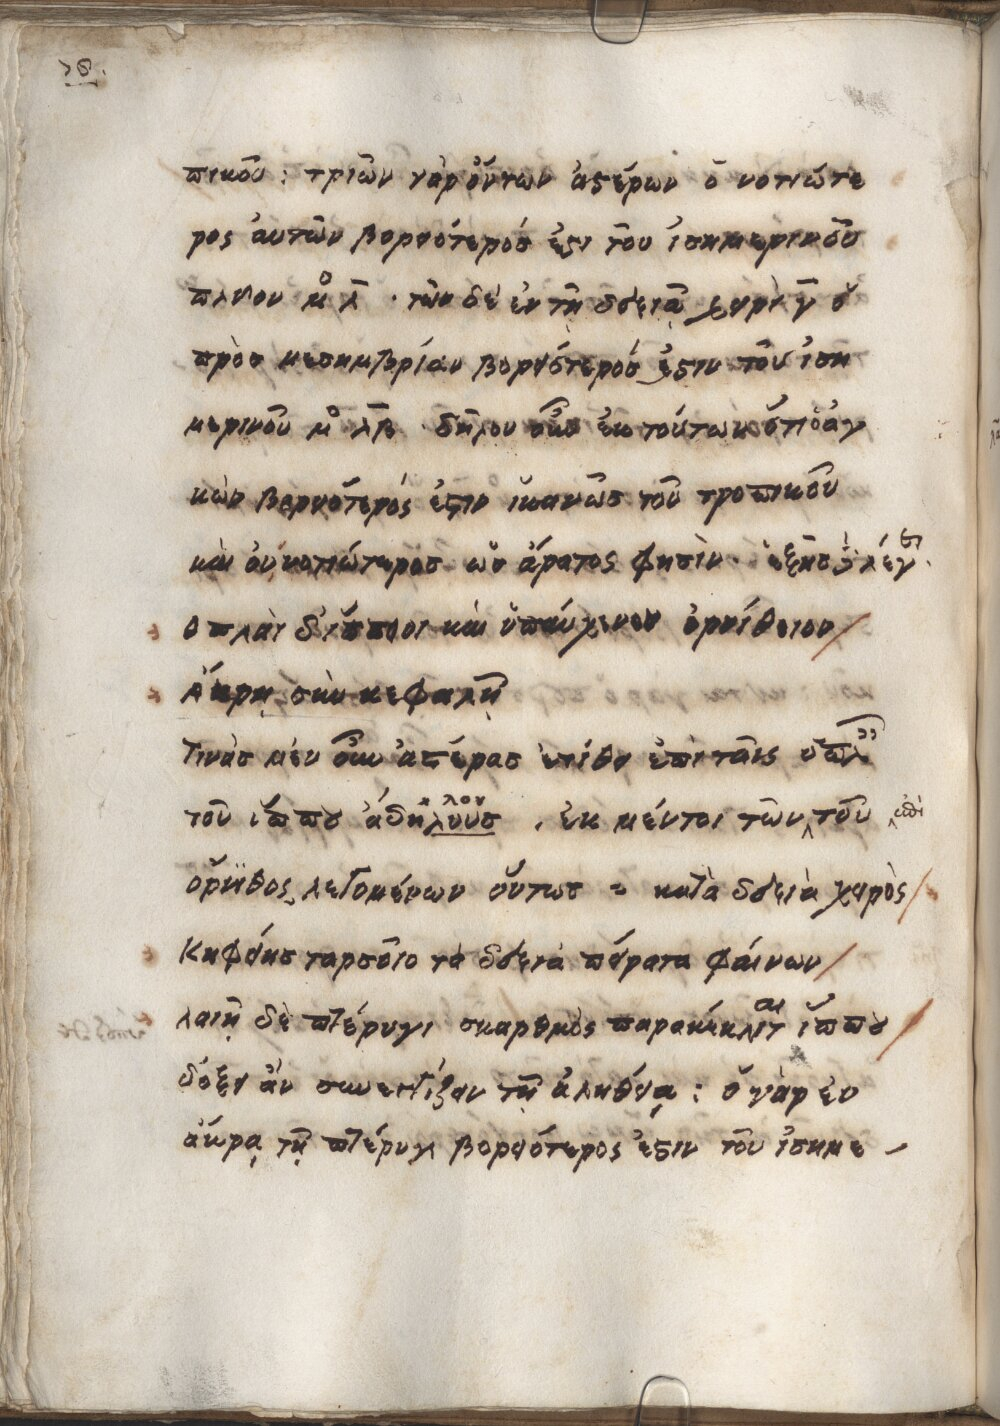 πικοῦ : τριῶν γὰρ ὄντων ἀστέρων ὁ νοτιώτε
ρος αὐτῶν βορειότερός ἐστι τοῦ ἰσημερινοῦ
πλεῖον μ̊ λ̅ · τῶν δὲ ἐν τῇ δεξιᾷ χειρὶ γ̅ ὁ
πρὸς μεσημβρίαν βορειότερός ἐστιν τοῦ ἰση
μερινοῦ μ̊ λ̅β̅ · δῆλον οὖν ἐκ τούτων ὅτι ὁ ἀγ
κὼν βορειότερός ἐστιν ἱκανῶς τοῦ τροπικοῦ
καὶ οὐ νοτιώτερος ὡς ἄρατος φησὶν · ἑξῆς λέγει
Ὁπλαὶ δ' ἵππειοι καὶ ὑπαύχενον ὀρνίθειον
Ἄκρῃ σὺν κεφαλῇ
Τινὰς μὲν οὖν ἀστέρας ἐτίθει ἐπὶ ταῖς ὁπλ
τοῦ ἵππου ἀδήλους λου . ἐκ μέντοι τῶν τοῦ ἐπὶ
ὄρνιθος λεγομένων οὕτως = κατὰ δεξιὰ χειρὸς
Κηφείης ταρσοῖο τὰ δεξιὰ πείρατα φαίνων
λαιῇ δὲ πτέρυγι σκαρθμὸς παρακέκλιται ἵππου
δόξει ἂν συνεγγίζειν τῇ ἀληθείᾳ : ὁ γὰρ ἐν
ἄκρᾳ τῇ πτέρυγι βορειότερος ἐστιν τοῦ ἰσημε